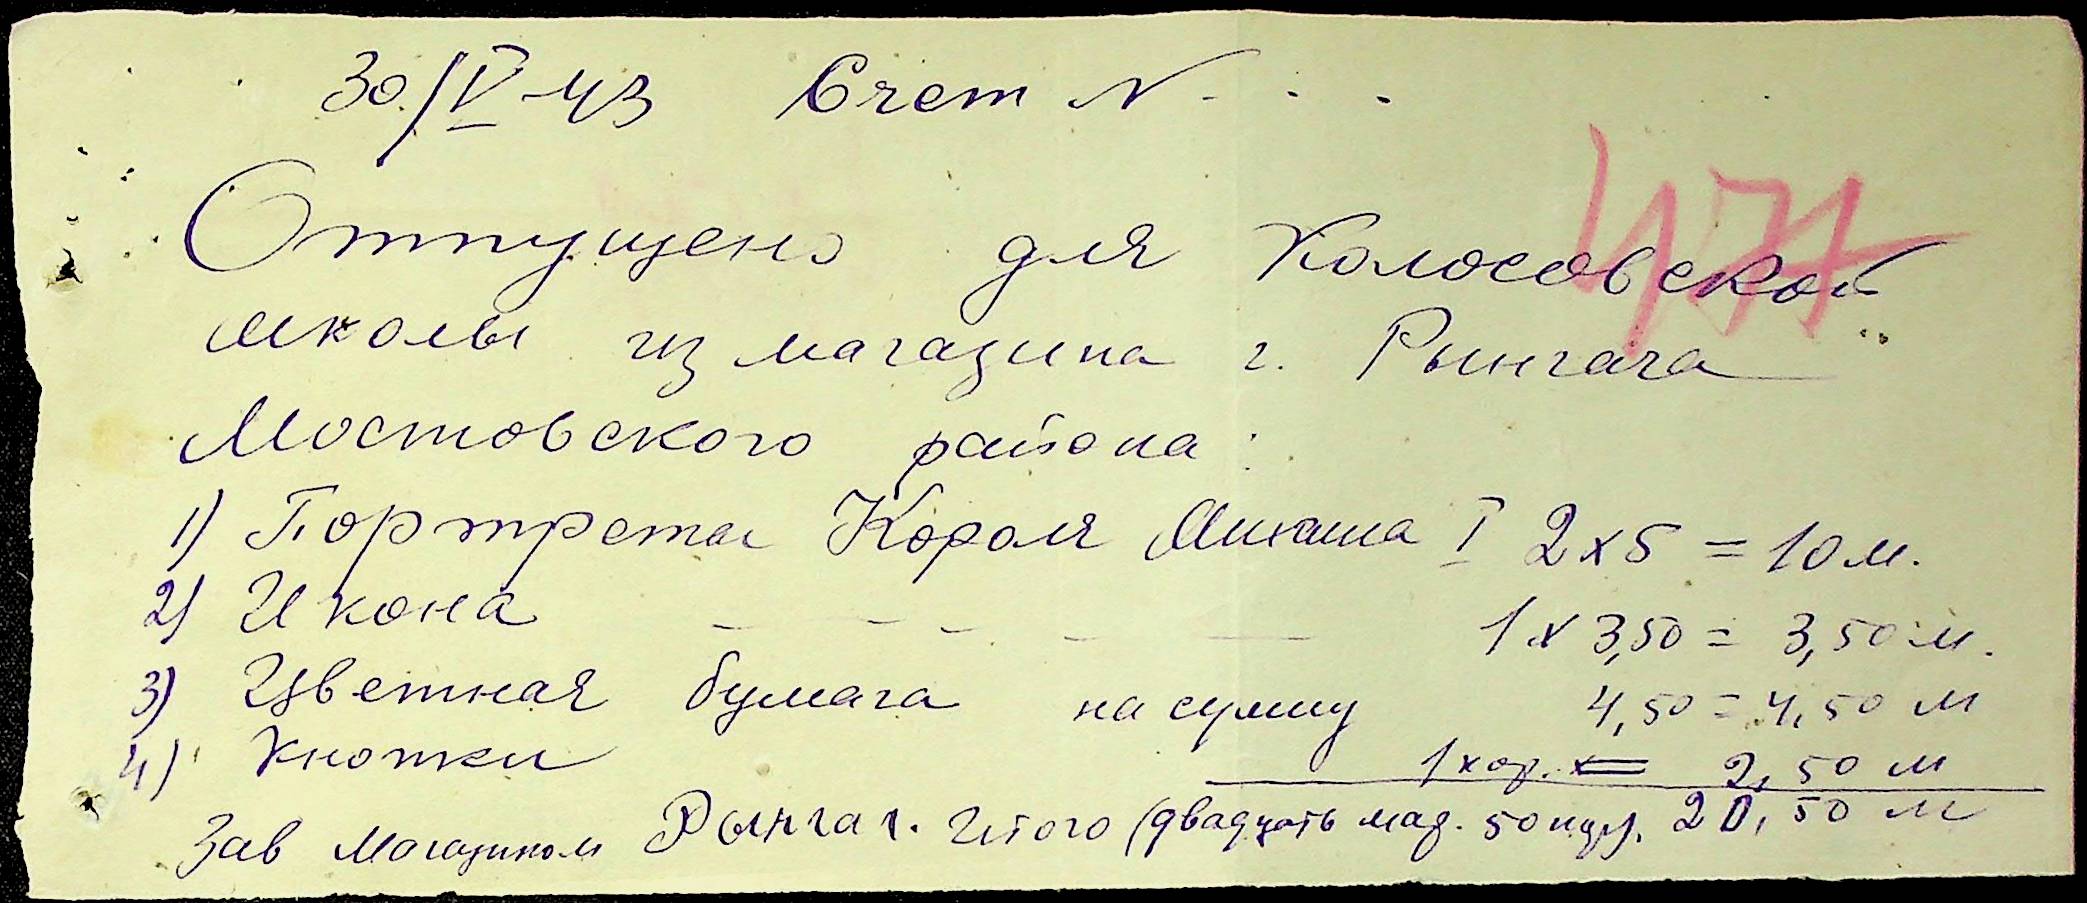 30/V-43 Счет N . . .
477
Отпущено для Колосовской
школы из магазина г. Рынгача
Мостовского района:
1) Портреты Короля Михаила I 2х5 = 10 м.
2) Икона – – – – – 1 х 3,50 = 3,50 м.
3) Цветная бумага на сумму 4,50 = 4,50 м
4) Кнопки 1 кор. = 2,50 м
Зав Магазином Рынгач. Итого (двадцать мар. 50 пф). 20,50 м